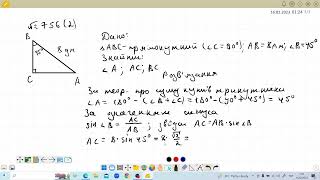 №756(2)
B
45°
8 дм
C
A
Дано:
△ABC - прямокутний (∠C=90°); AB=8дм; ∠B=45°
Знайти:
∠A; AC; BC
Розв'язання
За теор. про суму кутів трикутника
∠A = 180° - (∠B+∠C) = 180° - (90°+45°) = 45°
За означенням синуса
sin∠B = AC/AB ; звідси AC = AB·sin∠B
AC = 8·sin 45° = 8·√2/2 =